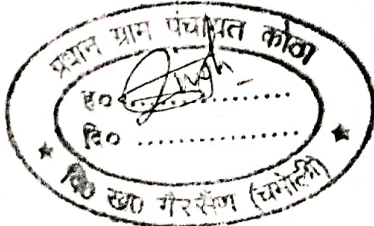 प्रधान ग्राम पंचायत कोठा
ह०
दि०
वि० ख० गैरसैंण (चमोली)